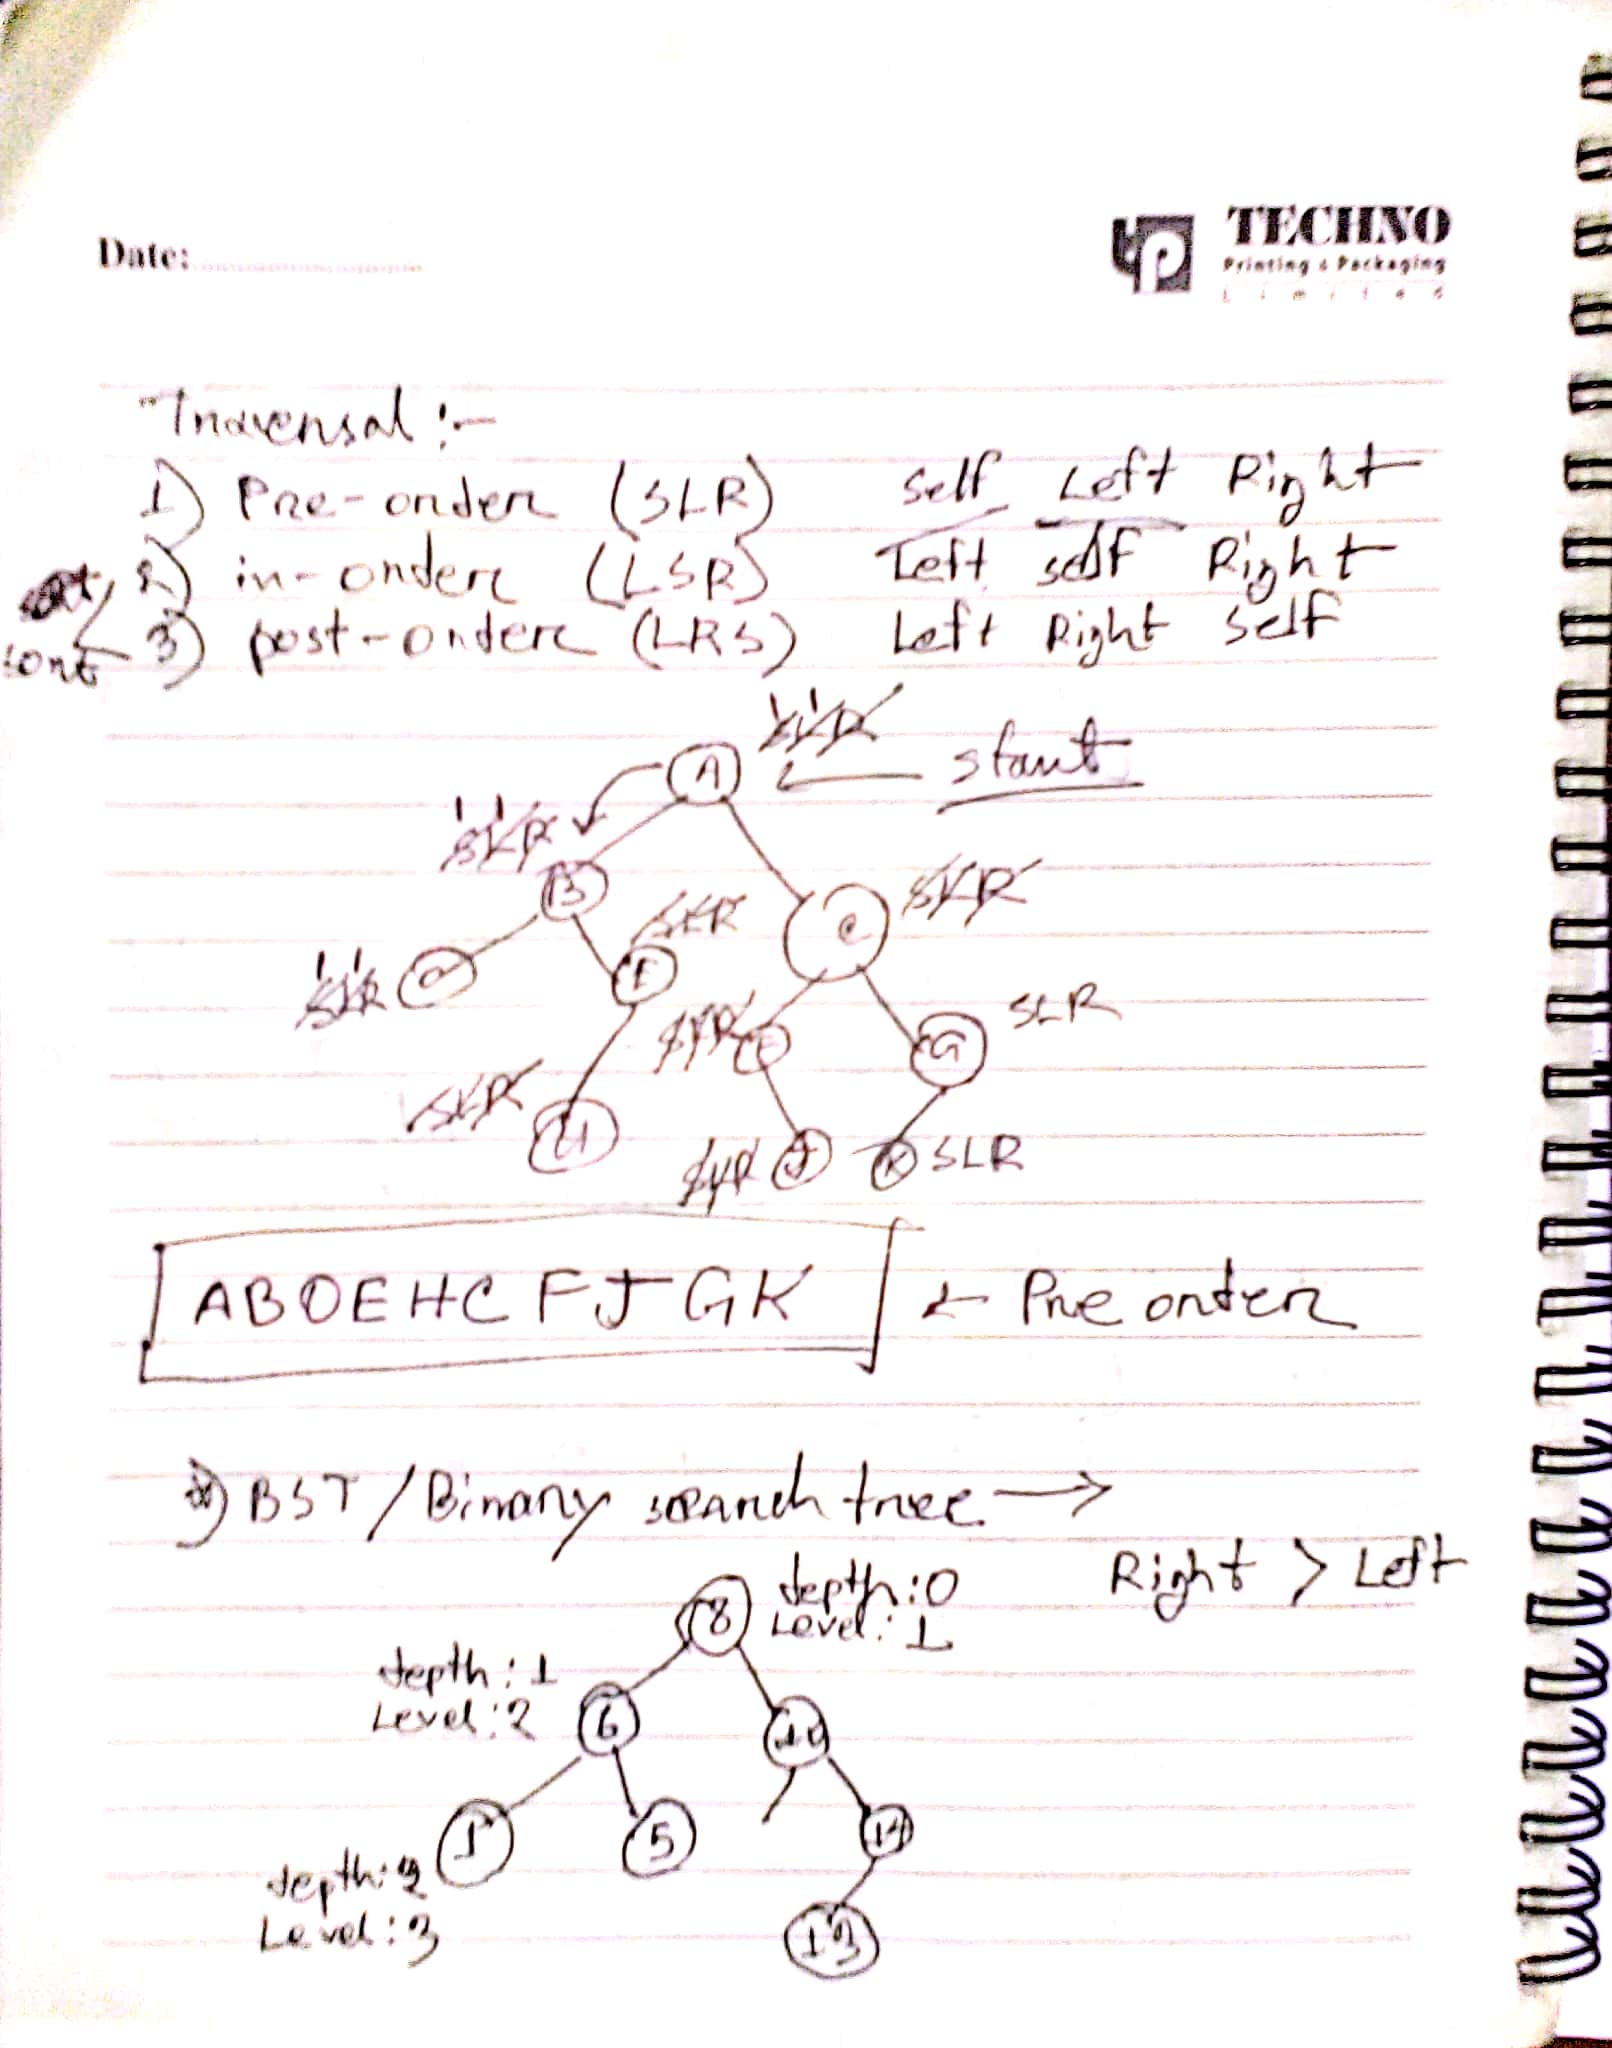 Date:
TECHNO
Printing & Packaging
Limited
Traversal :-
1) Pre-order (SLR) Self Left Right
2) in-order (LSR) Left self Right
3) post-order (LRS) Left Right Self
SLR
A start
SLR
B SLR C SLR
SLR D E
SLR F G SLR
SLR H SLR J K SLR
ABDEHCFJGK ← Pre order
BST / Binary search tree →
Right > Left
8 depth: 0
Level: 1
depth: 1
Level: 2 6 10
1 5 14
depth: 2
Level: 3 13